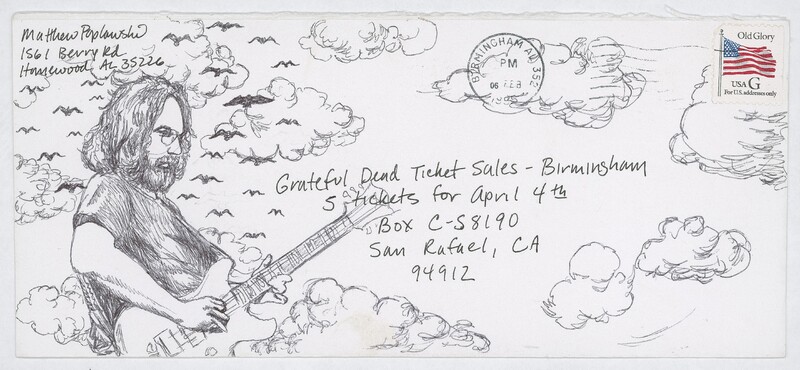 Matthew Poplawski
1561 Berry Rd
Homewood AL 35226
BIRMINGHAM AL 352
PM
06 FEB
Old Glory
USA G
For U.S. addresses only
Grateful Dead Ticket Sales - Birmingham
5 tickets for April 4th
Box C-S8190
San Rafael, CA
94912